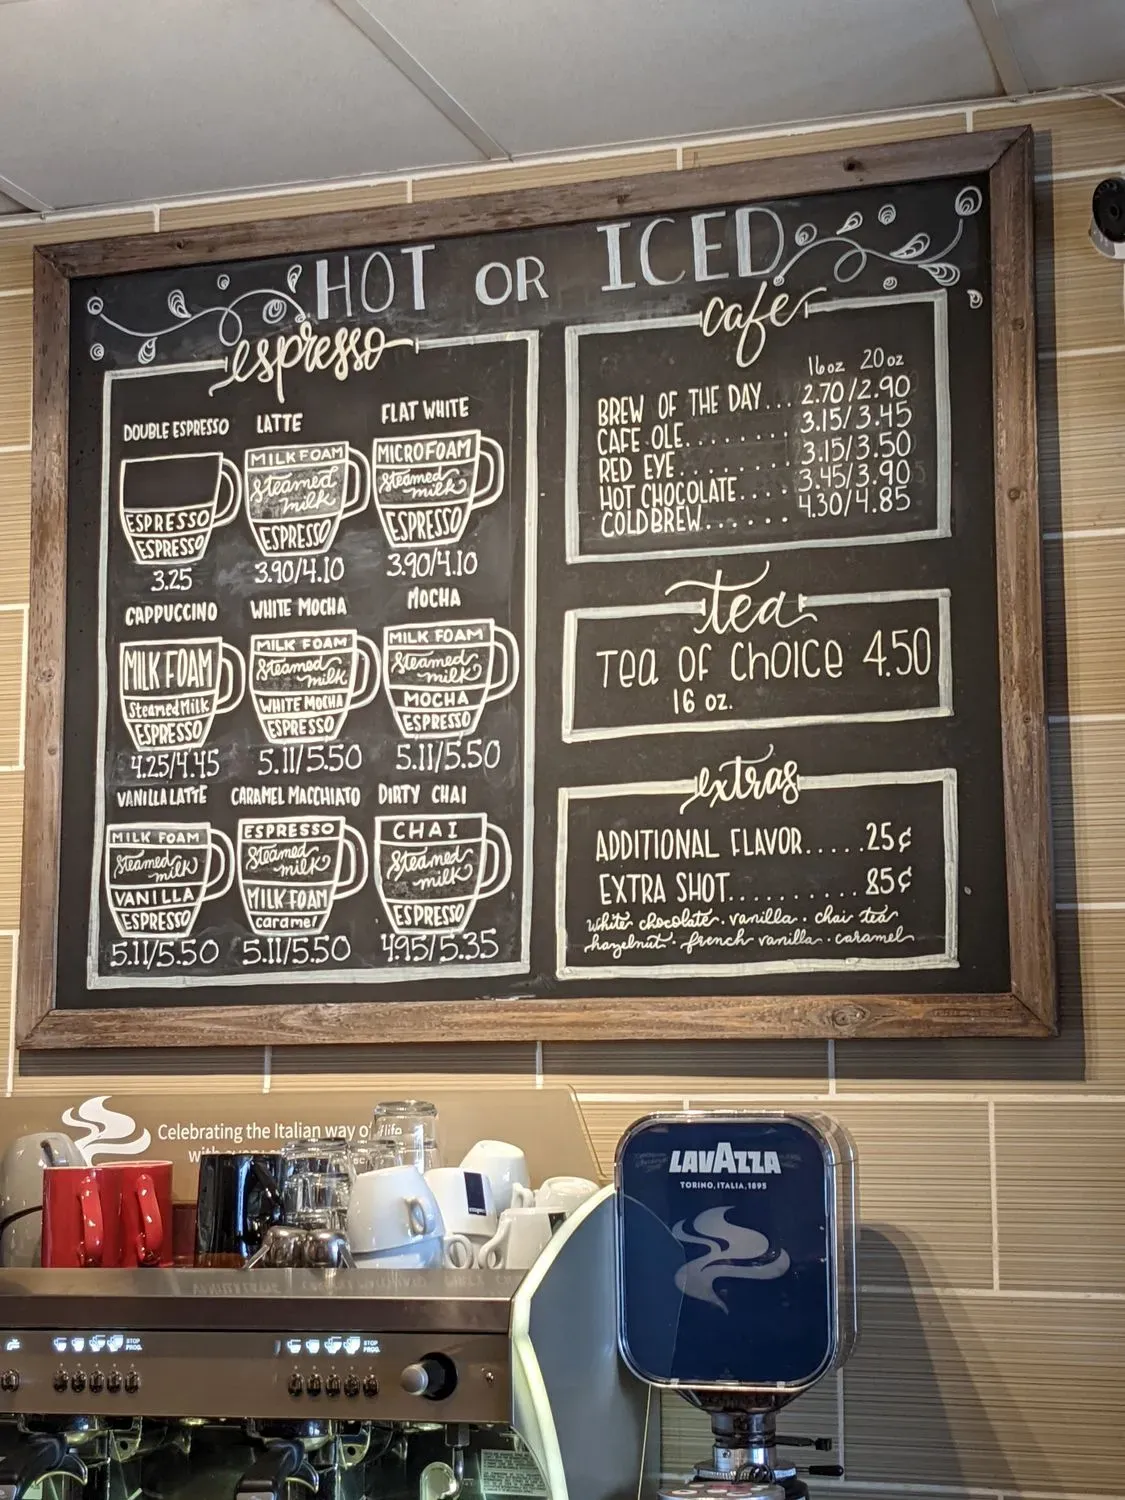 HOT OR ICED
espresso
DOUBLE ESPRESSO
ESPRESSO
ESPRESSO
3.25
LATTE
MILK FOAM
Steamed
milk
ESPRESSO
3.90/4.10
FLAT WHITE
MICROFOAM
Steamed
milk
ESPRESSO
3.90/4.10
CAPPUCCINO
MILK FOAM
Steamed Milk
ESPRESSO
4.25/4.45
WHITE MOCHA
MILK FOAM
Steamed
milk
WHITE MOCHA
ESPRESSO
5.11/5.50
MOCHA
MILK FOAM
Steamed
milk
MOCHA
ESPRESSO
5.11/5.50
VANILLA LATTE
MILK FOAM
Steamed
milk
VANILLA
ESPRESSO
5.11/5.50
CARAMEL MACCHIATO
ESPRESSO
Steamed
milk
MILK FOAM
caramel
5.11/5.50
DIRTY CHAI
CHAI
Steamed
milk
ESPRESSO
4.95/5.35
cafe
16oz 20oz
BREW OF THE DAY... 2.70/2.90
CAFE OLE........ 3.15/3.45
RED EYE........ 3.15/3.50
HOT CHOCOLATE.... 3.45/3.90
COLDBREW...... 4.30/4.85
tea
Tea of choice 4.50
16 oz.
extras
ADDITIONAL FLAVOR.....25¢
EXTRA SHOT.........85¢
white chocolate · vanilla · chai tea
hazelnut · french vanilla · caramel
Celebrating the Italian way of life
with
LAVAZZA
TORINO, ITALIA, 1895
STOP
PROG.
STOP
PROG.